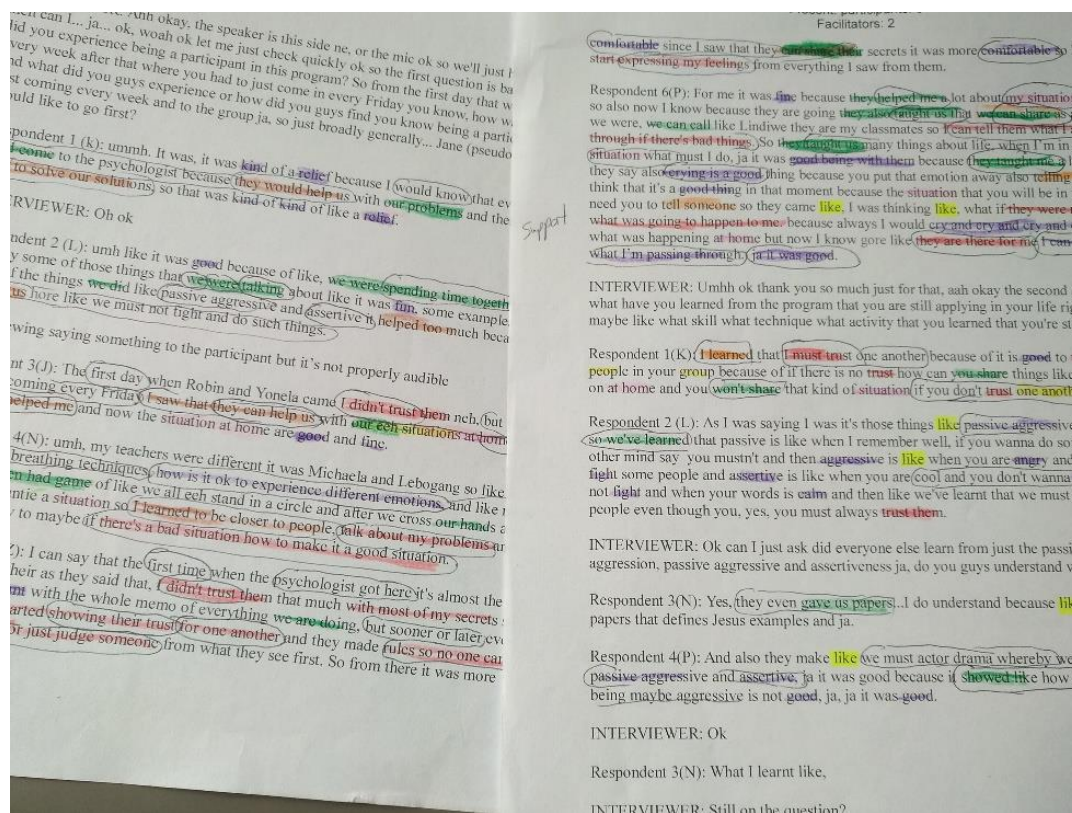 okay, the speaker is this side ne, or the mic ok so we'll just
can I... ja... ok, woah ok let me just check quickly ok so the first question is
did you experience being a participant in this program? So from the first day that
very week after that where you had to just come in every Friday you know, how
what did you guys experience or how did you guys find you know being a
coming every week and to the group ja, so just broadly generally... Jane (pseudo
would like to go first?
Respondent 1 (k): ummh. It was, it was kind of a relief because I would know that
come to the psychologist because they would help us with our problems and the
to solve our solutions, so that was kind of kind of like a relief.
INTERVIEWER: Oh ok
Respondent 2 (L): umh like it was good because of like, we were spending time
some of those things that we were talking about like it was fun, some
the things we did like passive aggressive and assertive it helped too much
us hore like we must not fight and do such things.
saying something to the participant but it's not properly audible
3(J): The first day when Robin and Yonela came I didn't trust them neh, but
coming every Friday I saw that they can help us with our eeh situations at
helped me and now the situation at home are good and fine.
4(N): umh, my teachers were different it was Michaela and Lebogang so like
breathing techniques, how is it ok to experience different emotions, and like
had game of like we all eeh stand in a circle and after we cross our hands
a situation so I learned to be closer to people, talk about my problems
to maybe if there's a bad situation how to make it a good situation.
): I can say that the first time when the psychologist got here it's almost the
as they said that, I didn't trust them that much with most of my secrets
with the whole memo of everything we are doing, but sooner or later
showing their trust for one another and they made rules so no one
or just judge someone from what they see first. So from there it was more
Support
Facilitators: 2
comfortable since I saw that they can share their secrets it was more comfortable so
start expressing my feelings from everything I saw from them.
Respondent 6(P): For me it was fine because they helped me a lot about my
so also now I know because they are going they also taught us that we can share as
we were, we can call like Lindiwe they are my classmates so I can tell them what I
through if there's bad things. So they taught us many things about life, when I'm in
situation what must I do, ja it was good being with them because they taught me a
they say also crying is a good thing because you put that emotion away also telling
think that it's a good thing in that moment because the situation that you will be in
need you to tell someone so they came like, I was thinking like, what if they were
what was going to happen to me. because always I would cry and cry and cry and
what was happening at home but now I know gore like they are there for me I can
what I'm passing through, ja it was good.
INTERVIEWER: Umhh ok thank you so much just for that, aah okay the second
what have you learned from the program that you are still applying in your life
maybe like what skill what technique what activity that you learned that you're
Respondent 1(K): I learned that I must trust one another because of it is good to
people in your group because of if there is no trust how can you share things like
on at home and you won't share that kind of situation if you don't trust one
Respondent 2 (L): As I was saying I was it's those things like passive aggressive
so we've learned that passive is like when I remember well, if you wanna do so
other mind say you mustn't and then aggressive is like when you are angry and
fight some people and assertive is like when you are cool and you don't wanna
not fight and when your words is calm and then like we've learnt that we must
people even though you, yes, you must always trust them.
INTERVIEWER: Ok can I just ask did everyone else learn from just the
aggression, passive aggressive and assertiveness ja, do you guys understand
Respondent 3(N): Yes, they even gave us papers...I do understand because
papers that defines Jesus examples and ja.
Respondent 4(P): And also they make like we must actor drama whereby we
passive aggressive and assertive, ja it was good because it showed like how
being maybe aggressive is not good, ja, ja it was good.
INTERVIEWER: Ok
Respondent 3(N): What I learnt like,
INTERVIEWER: Still on the question?